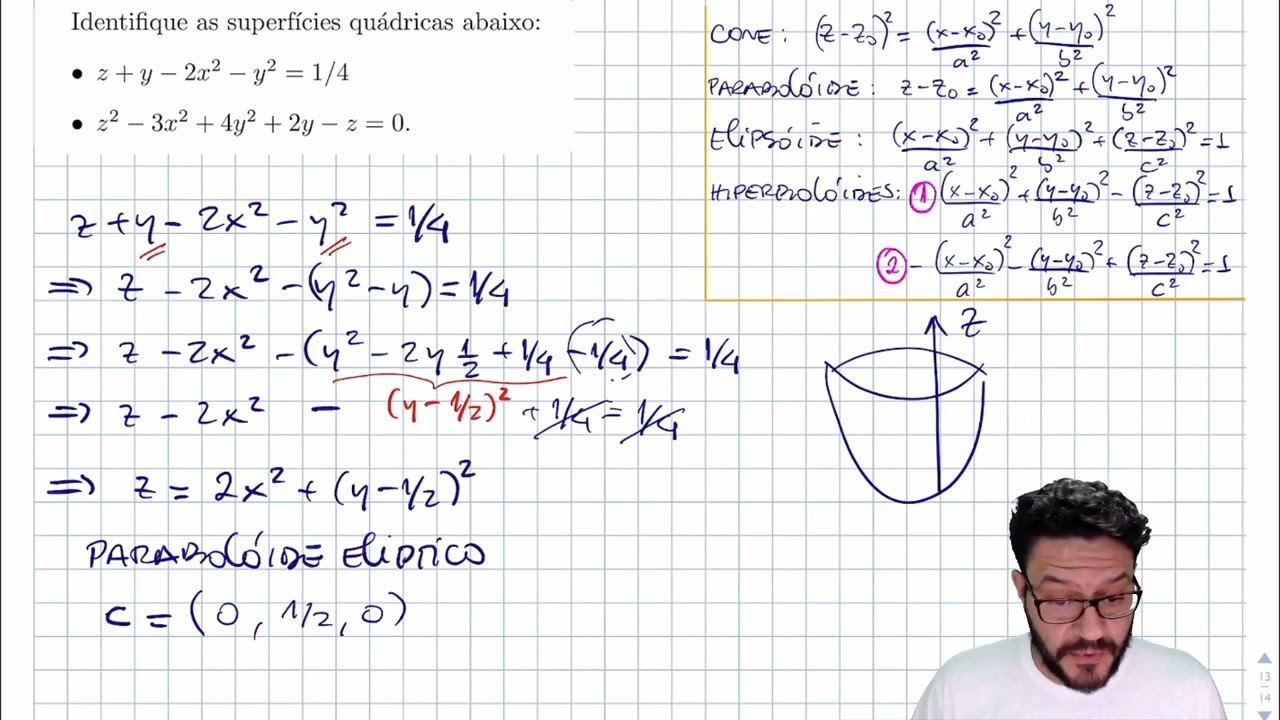 Identifique as superfícies quádricas abaixo:
• z + y − 2x² − y² = 1/4
• z² − 3x² + 4y² + 2y − z = 0.
CONE: (z-z₀)² = (x-x₀)²/a² + (y-y₀)²/b²
PARABOLÓIDE: z-z₀ = (x-x₀)²/a² + (y-y₀)²/b²
ELIPSÓIDE: (x-x₀)²/a² + (y-y₀)²/b² + (z-z₀)²/c² = 1
HIPERBOLÓIDES: ① (x-x₀)²/a² + (y-y₀)²/b² - (z-z₀)²/c² = 1
② - (x-x₀)²/a² - (y-y₀)²/b² + (z-z₀)²/c² = 1
z + y - 2x² - y² = 1/4
=> z - 2x² - (y² - y) = 1/4
=> z - 2x² - (y² - 2y 1/2 + 1/4 - 1/4) = 1/4
=> z - 2x² - (y - 1/2)² + 1/4 = 1/4
=> z = 2x² + (y - 1/2)²
PARABOLÓIDE ELÍPTICO
C = (0, 1/2, 0)
z
13
14